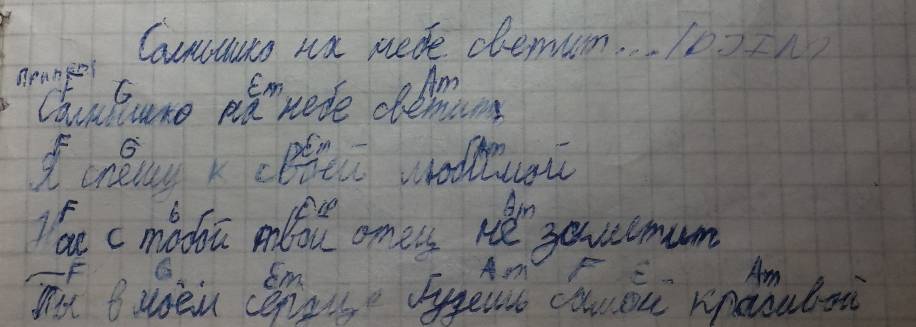 Солнышко на небе светит... (DJIN)
Припев
F G Em Am
Солнышко на небе светит
F G Em Am
Я спешу к своей любимой
F G Em Am
Нас с тобой твой отец не заметит
F G Em Am F E Am
Ты в моём сердце будешь самой красивой